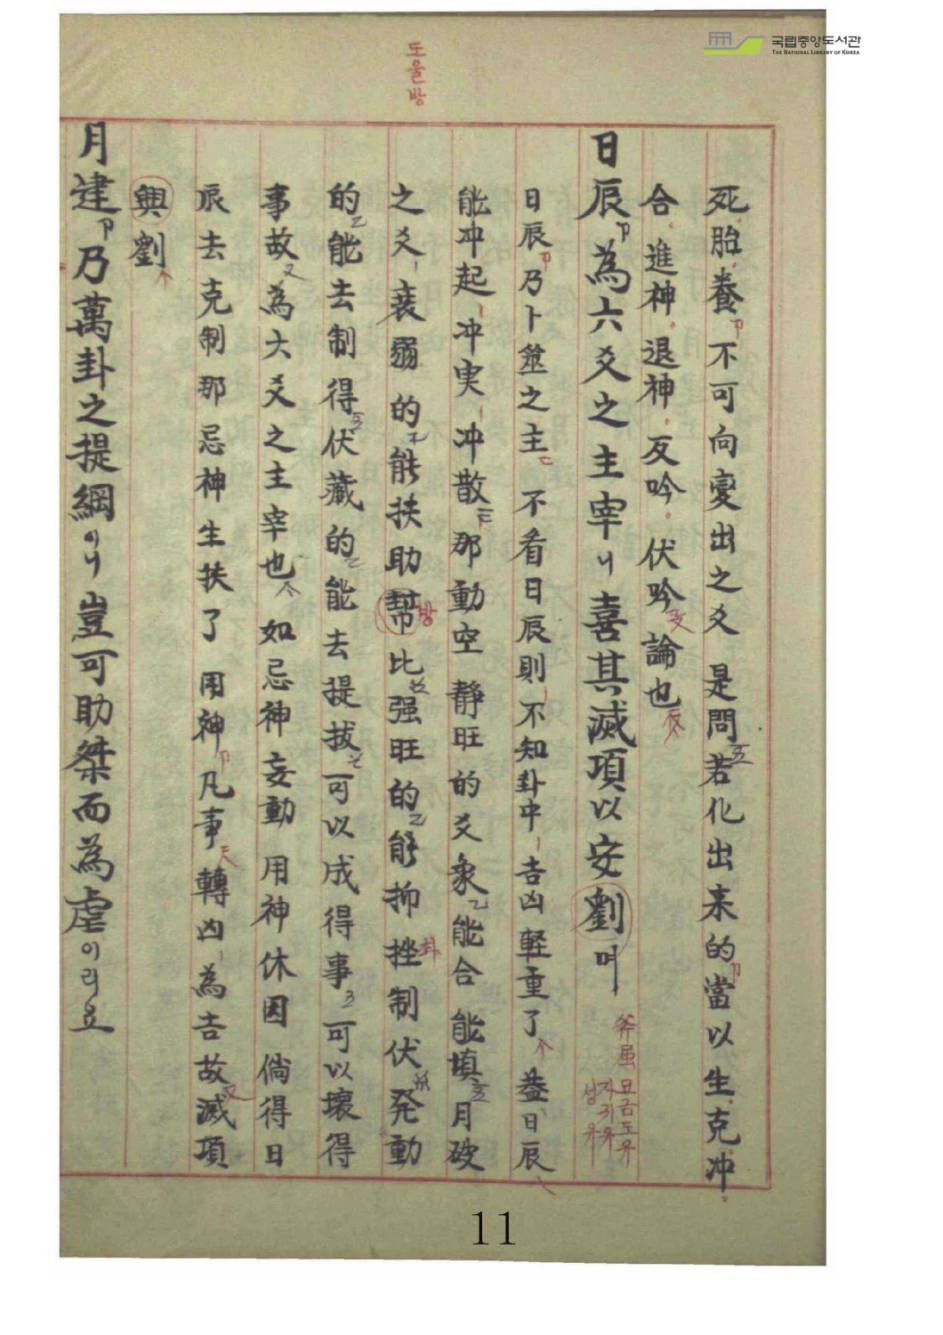 국립중앙도서관
THE NATIONAL LIBRARY OF KOREA
도울방
死胎養不可向変出之爻 是問若化出来的當以生克冲
合進神退神反吟伏吟論也
日辰為六爻之主宰니 喜其滅項以安劉며
日辰乃卜筮之主 不看日辰則不知卦中吉凶軽重了 盖日辰
能冲起冲実冲散那動空 静旺的爻象能合能填月破
之爻衰弱的能扶助幇比强旺的能抑挫制伏発動
방
卦
的能去制得伏藏的能去提拔可以成得事可以壞得
事故為大爻之主宰也如忌神妄動 用神休囚 倘得日
辰去克制那忌神生扶了用神凡事轉凶為吉故滅項
興劉
月建乃萬卦之提綱이니 豈可助桀而為虐이리요
11